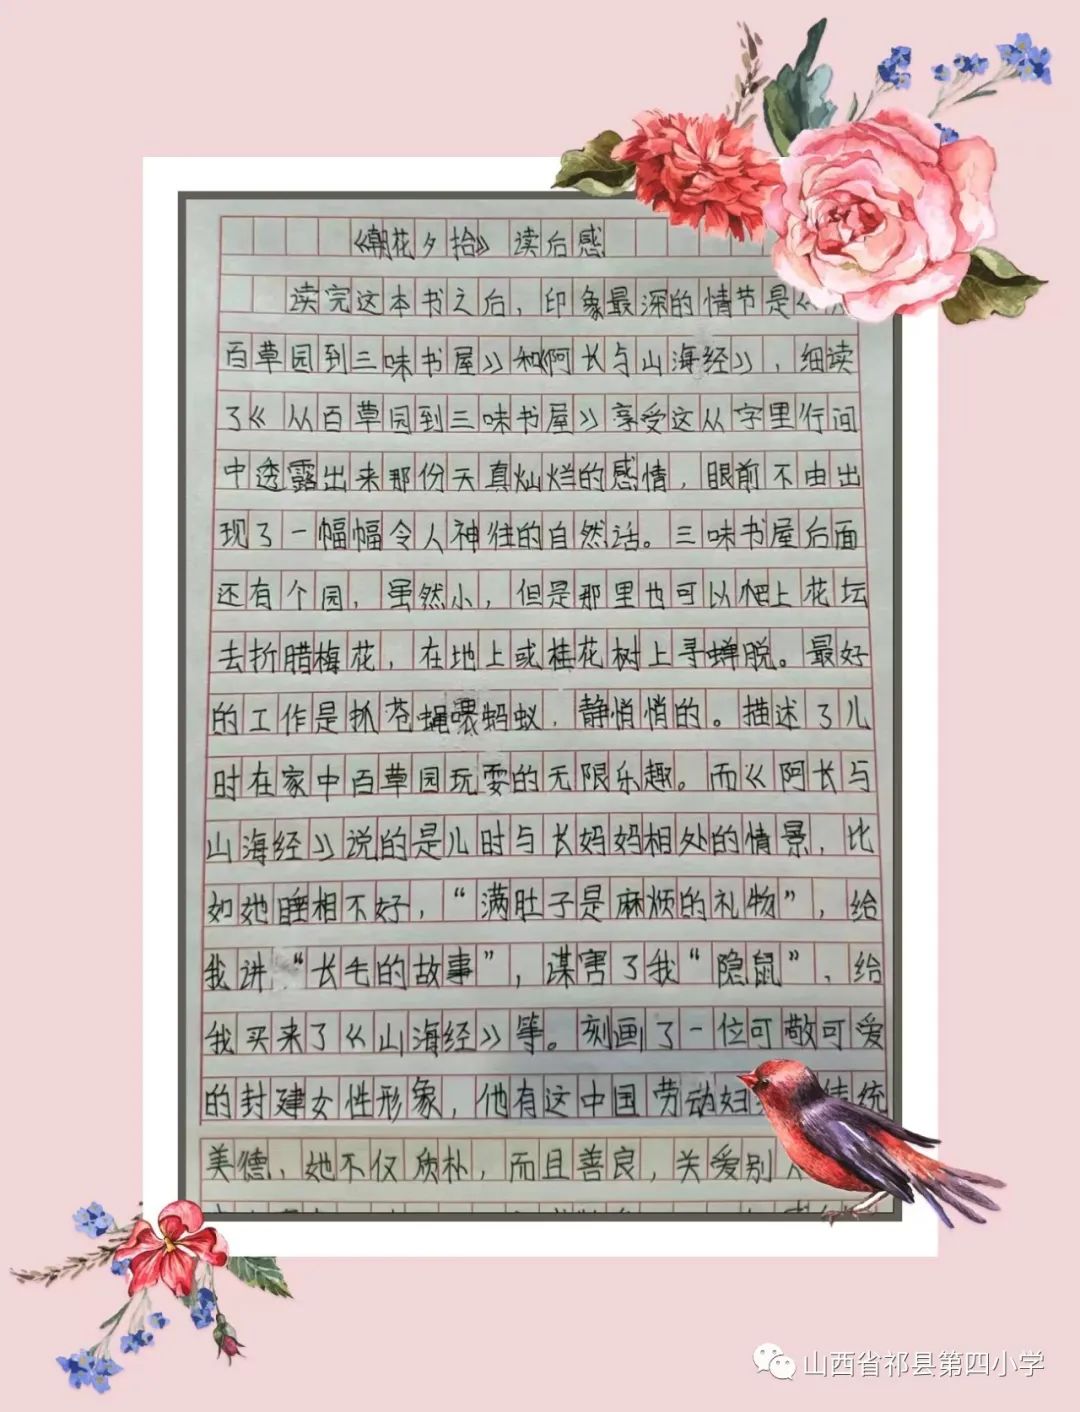 《朝花夕拾》读后感
读完这本书之后，印象最深的情节是《
百草园到三味书屋》和《阿长与山海经》，细读
了《从百草园到三味书屋》享受这从字里行间
中透露出来那份天真灿烂的感情，眼前不由出
现了一幅幅令人神往的自然话。三味书屋后面
还有个园，虽然小，但是那里也可以爬上花坛
去折腊梅花，在地上或桂花树上寻蝉脱。最好
的工作是抓苍蝇喂蚂蚁，静悄悄的。描述了儿
时在家中百草园玩耍的无限乐趣。而《阿长与
山海经》说的是儿时与长妈妈相处的情景，比
如她睡相不好，“满肚子是麻烦的礼物”，给
我讲“长毛的故事”，谋害了我“隐鼠”，给
我买来了《山海经》等。刻画了一位可敬可爱
的封建女性形象，他有这中国劳动妇传统
美德，她不仅质朴，而且善良，关爱别
山西省祁县第四小学